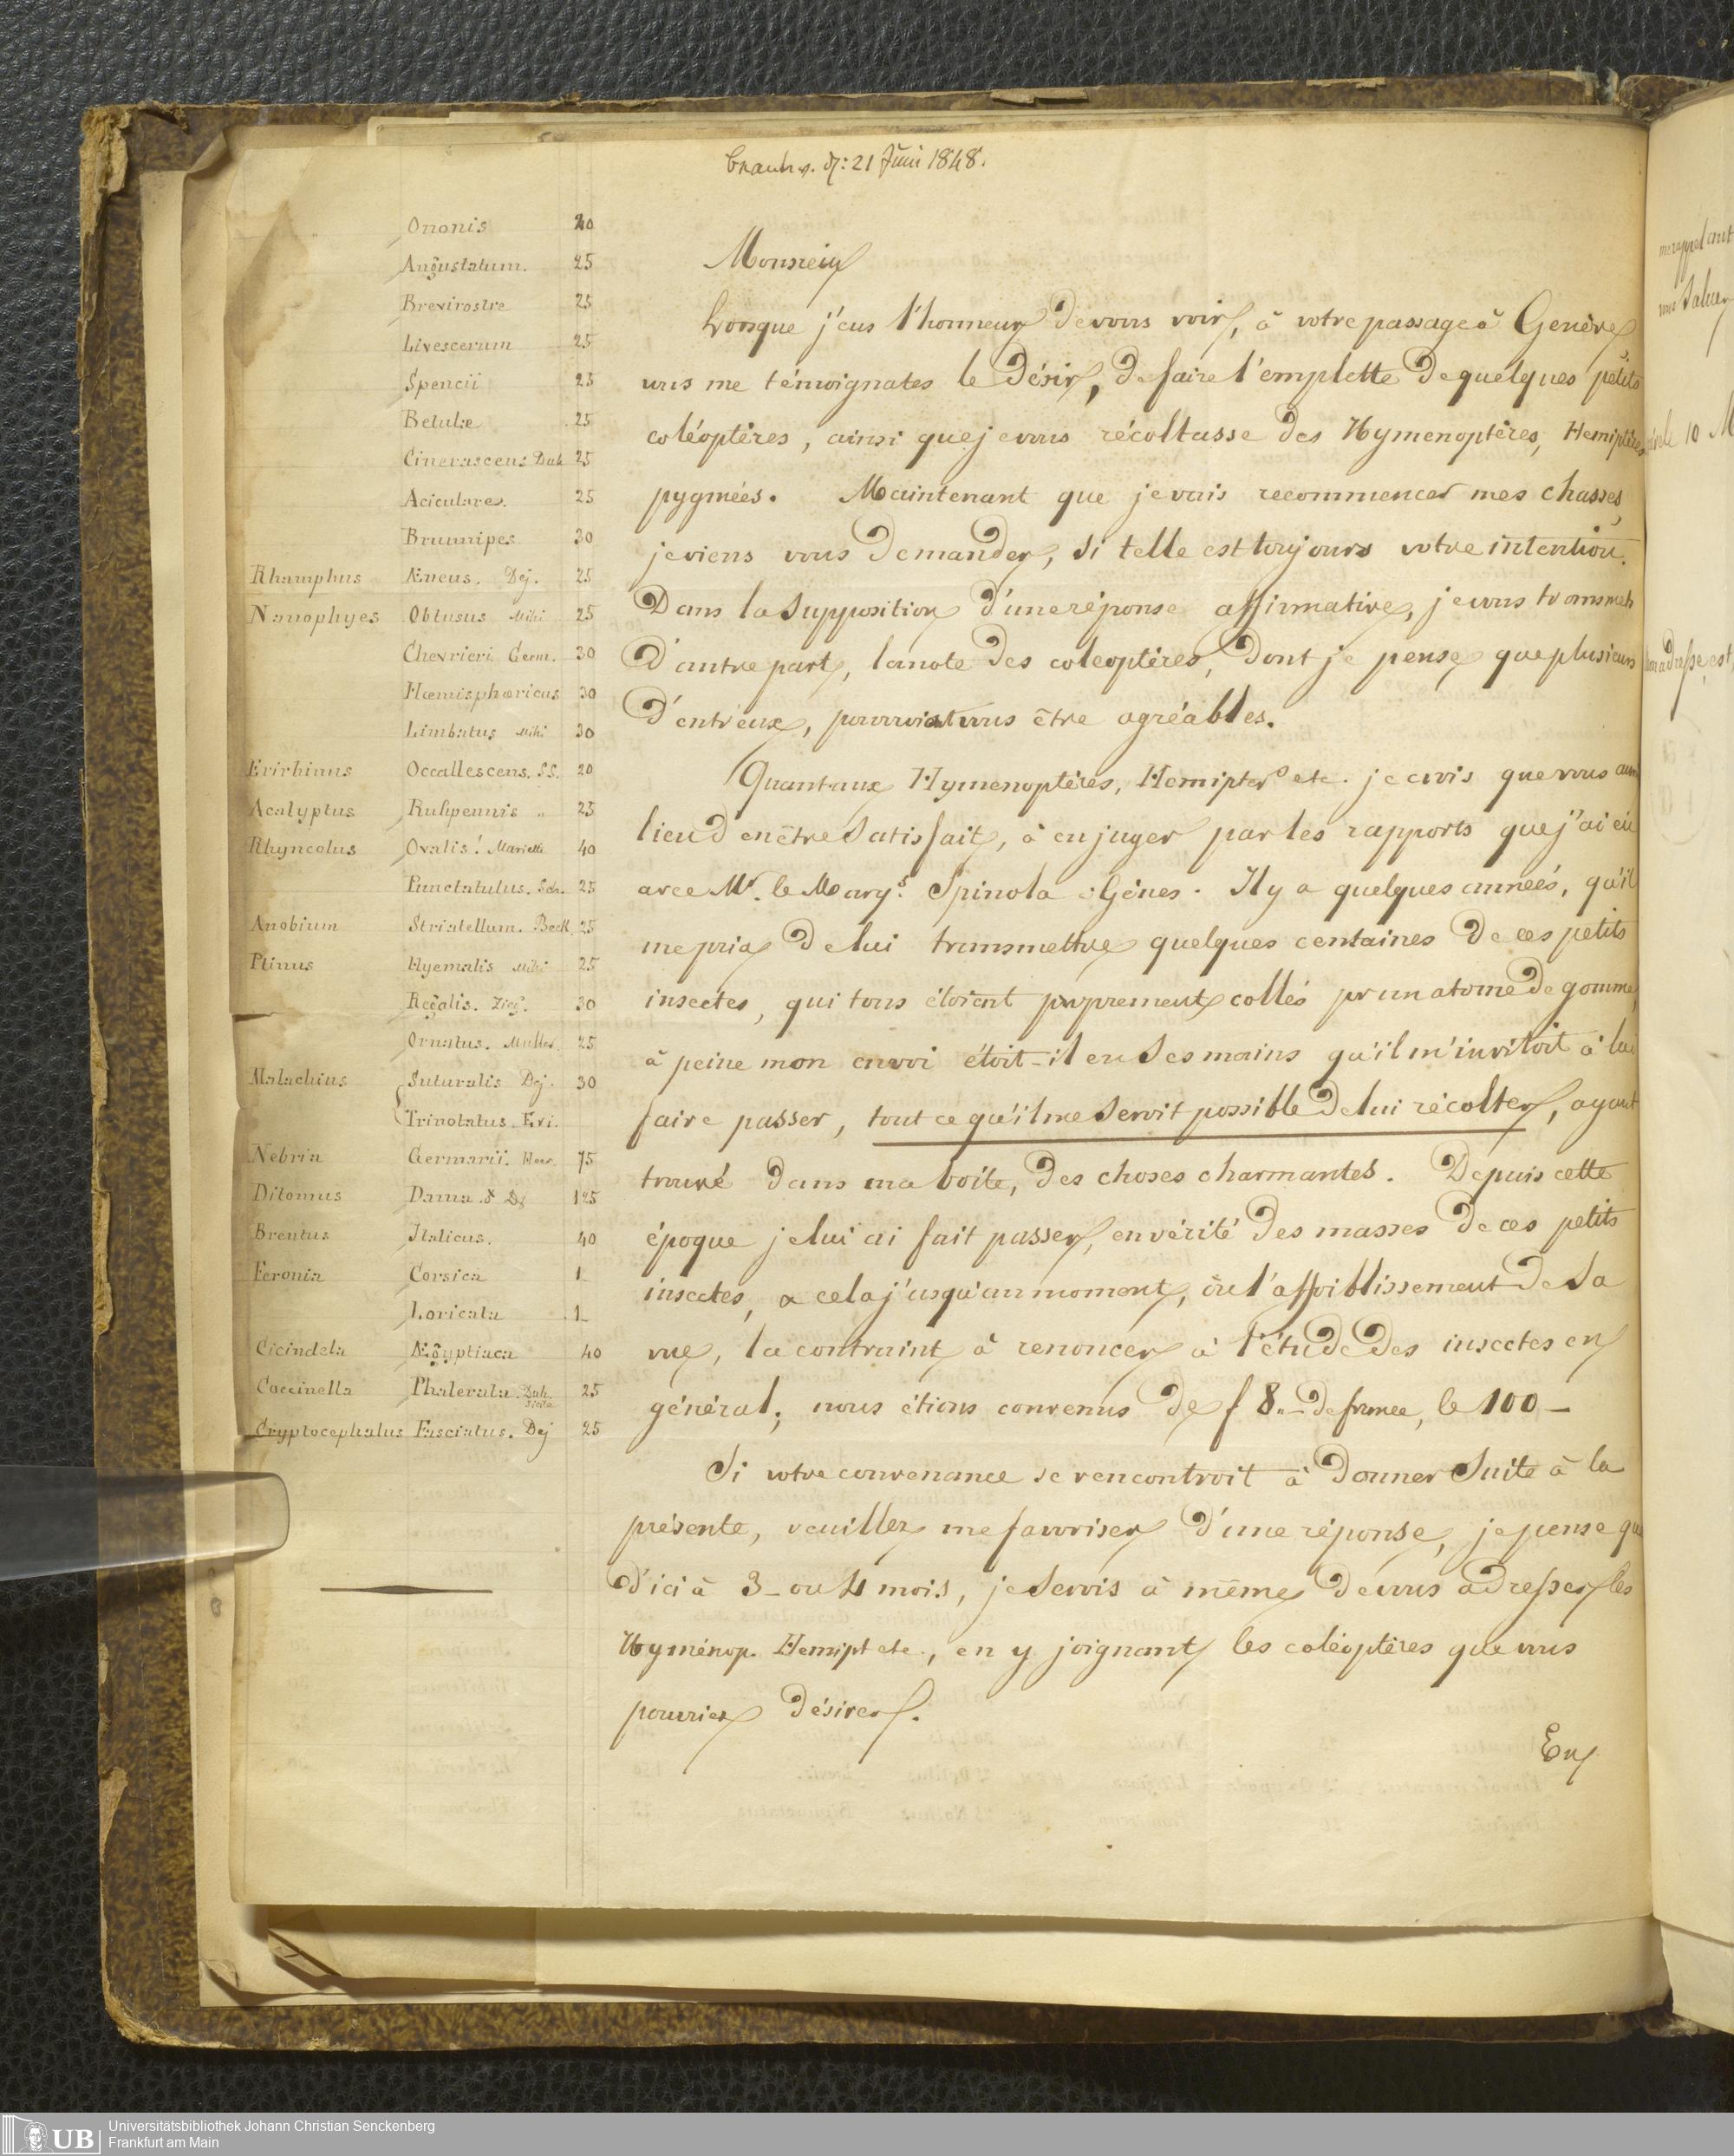 21 Juni 1848.
Ononis 20
Angustatum. 25
Brevirostre 25
Livescerum 25
Spencii 25
Betulæ 25
Cinerascens Dah 25
Aciculare. 25
Brunnipes 30
Rhamphus Æneus. Dej. 25
Nanophyes Obtusus Mihi 25
Chevrieri Germ. 30
Hæmisphæricus 30
Limbatus Mihi 30
Erirhinus Occallescens. SS. 20
Acalyptus Rufipennis „ 25
Rhyncolus Ovalis! 40
Punctatulus. Sch. 25
Anobium Striatellum. Beck 25
Ptinus Hyemalis Mihi 25
Regalis. Zieg. 30
Ornatus. Muller. 25
Malachius Suturalis Dej. 30
Trinotatus. Eri.
Nebria Germarii. Heer. 75
Ditomus Dama. Dj 125
Brentus Italicus. 40
Feronia Corsica 1_
Loricata 1_
Cicindela Ægyptiaca 40
Coccinella Phalerata. Dah. Sicila 25
Cryptocephalus Fasciatus. Dej 25
Monsieur
Lorsque j'eus l'honneur de vous voir, à votre passage à Genève
vous me témoignates le Désir, de faire l'emplette de quelques petits
coléoptères, ainsi que je vous récoltasse des Hymenoptères, Hemiptères
pygmées. Maintenant que je vais recommencer mes chasses,
je viens vous demander, si telle est toujours votre intention.
Dans la supposition d'une réponse affirmative, je vous transmets
d'autre part, la note des coleoptères, dont je pense que plusieurs
d'entr'eux, pourroient vous être agréables.
Quant aux Hymenoptères, Hemipter° etc. je crois que vous aurez
lieu d'en être satisfait, à en juger par les rapports que j'ai eu
avec Mr. le Marq.s Spinola à Gènes. Il y a quelques années, qu'il
me pria de lui transmettre quelques centaines de ces petits
insectes, qui tous étoient proprement collés pr un atome de gomme,
à peine mon envoi étoit-il en ses mains qu'il m'invitoit à lui
faire passer, tout ce qu'il me seroit possible de lui récolter, ayant
trouvé dans ma boite, des choses charmantes. Depuis cette
époque je lui ai fait passer, en vérité des masses de ces petits
insectes, & cela j'usqu'au moment, où l'affoiblissement de sa
vue, l'a contraint à renoncer à l'étude des insectes en
général; nous étions convenus de f 8.- de france, le 100 -
Si votre convenance se rencontroit à donner suite à la
présente, veuillez me favoriser d'une réponse, je pense que
d'ici à 3_ ou 4 mois, je serois à même de vous adresser les
Hyménop. Hemipt etc., en y joignant les coléoptères que vous
pourriez désirer.
En